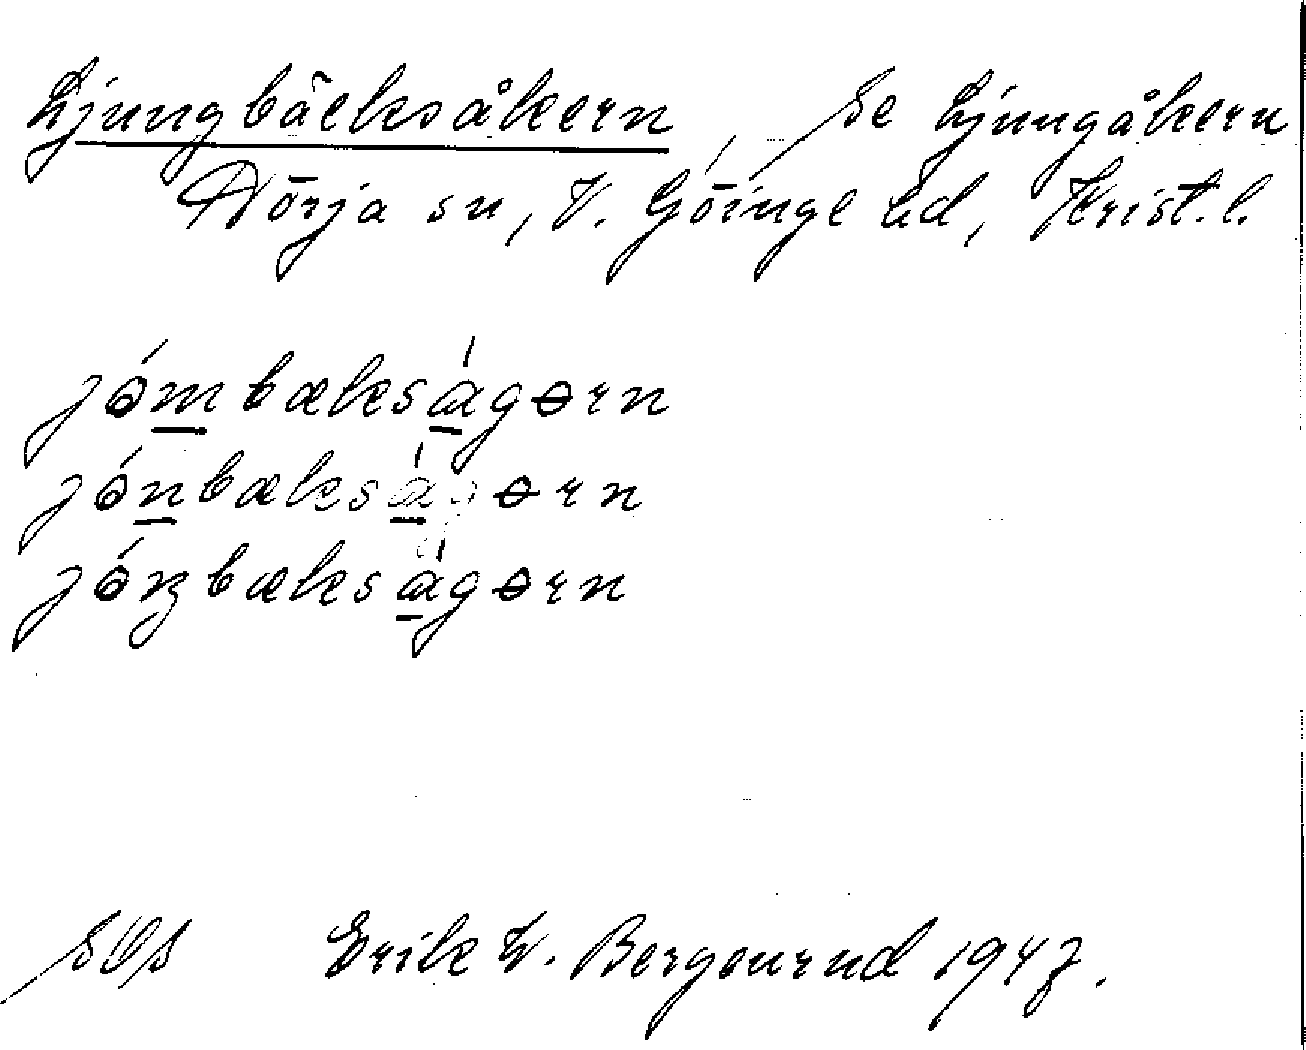 Ljungbäcksåkern, Se Ljungåkern
Nörja sn, V. Göinge hd, Krist. l.
jómbækságɵrn
jónbækságɵrn
jóŋbækságɵrn
SOs Erik W. Bergeurud 1947.